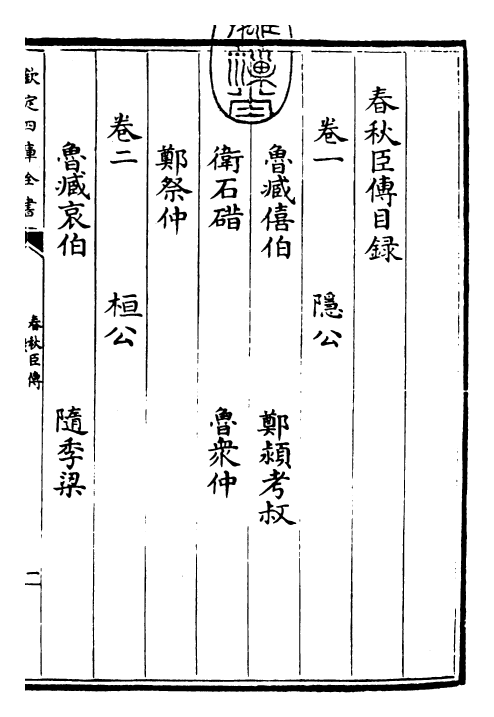 春秋臣傳目録
卷一 隱公
魯臧僖伯 鄭潁考叔
衛石碏 魯衆仲
鄭祭仲
卷二 桓公
魯臧哀伯 隨季梁
欽定四庫全書 春秋臣傳